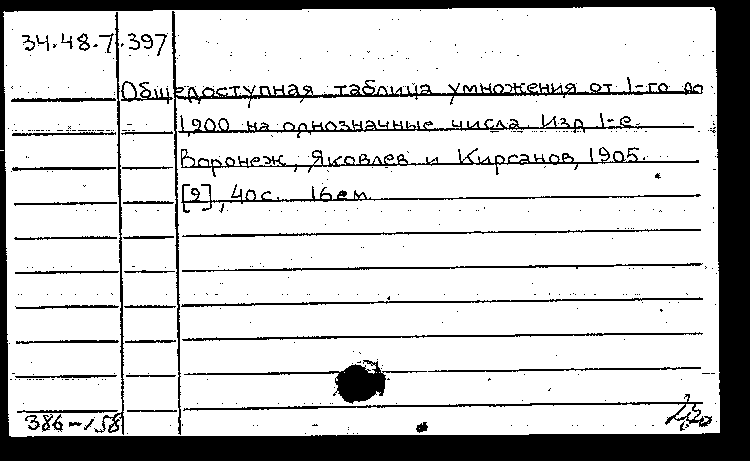 34.48.7.397
Общедоступная таблица умножения от 1-го до
1,900 на однозначные числа. Изд 1-е.
Воронеж, Яковлев и Кирсанов, 1905.
[2], 40с. 16см.
386-158